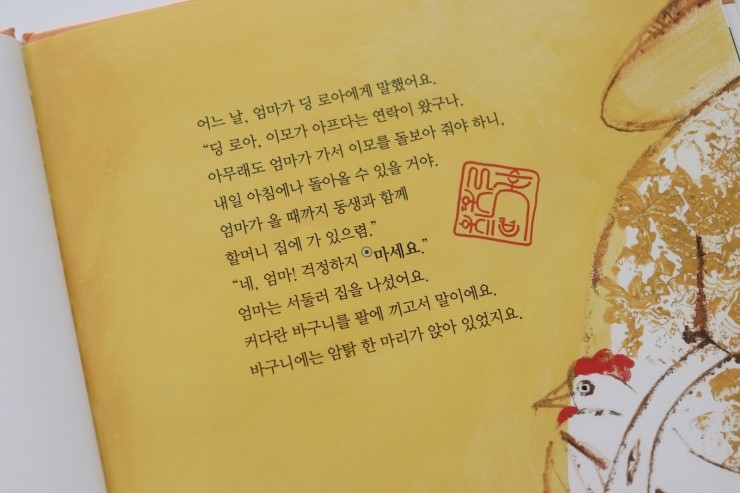 어느 날, 엄마가 딩 로아에게 말했어요.
“딩 로아, 이모가 아프다는 연락이 왔구나.
아무래도 엄마가 가서 이모를 돌보아 줘야 하니,
내일 아침에나 돌아올 수 있을 거야.
엄마가 올 때까지 동생과 함께
할머니 집에 가 있으렴.”
“네, 엄마! 걱정하지 마세요.”
엄마는 서둘러 집을 나섰어요.
커다란 바구니를 팔에 끼고서 말이에요.
바구니에는 암탉 한 마리가 앉아 있었지요.